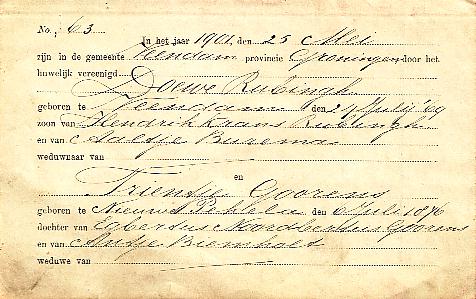 No. 63
In het jaar 1901, den 25 Mei
zijn in de gemeente Veendam provincie Groningen door het
huwelijk vereenigd
Doewe Rubingh
geboren te Veendam den 29 Juli '69
zoon van Hendrik Rubingh
en van Aaltje Buzema
weduwnaar van
en
Trientje Goorens
geboren te Nieuwe Pekela den 6 Juli 1876
dochter van Noordbertus Goorens
en van Antje
weduwe van